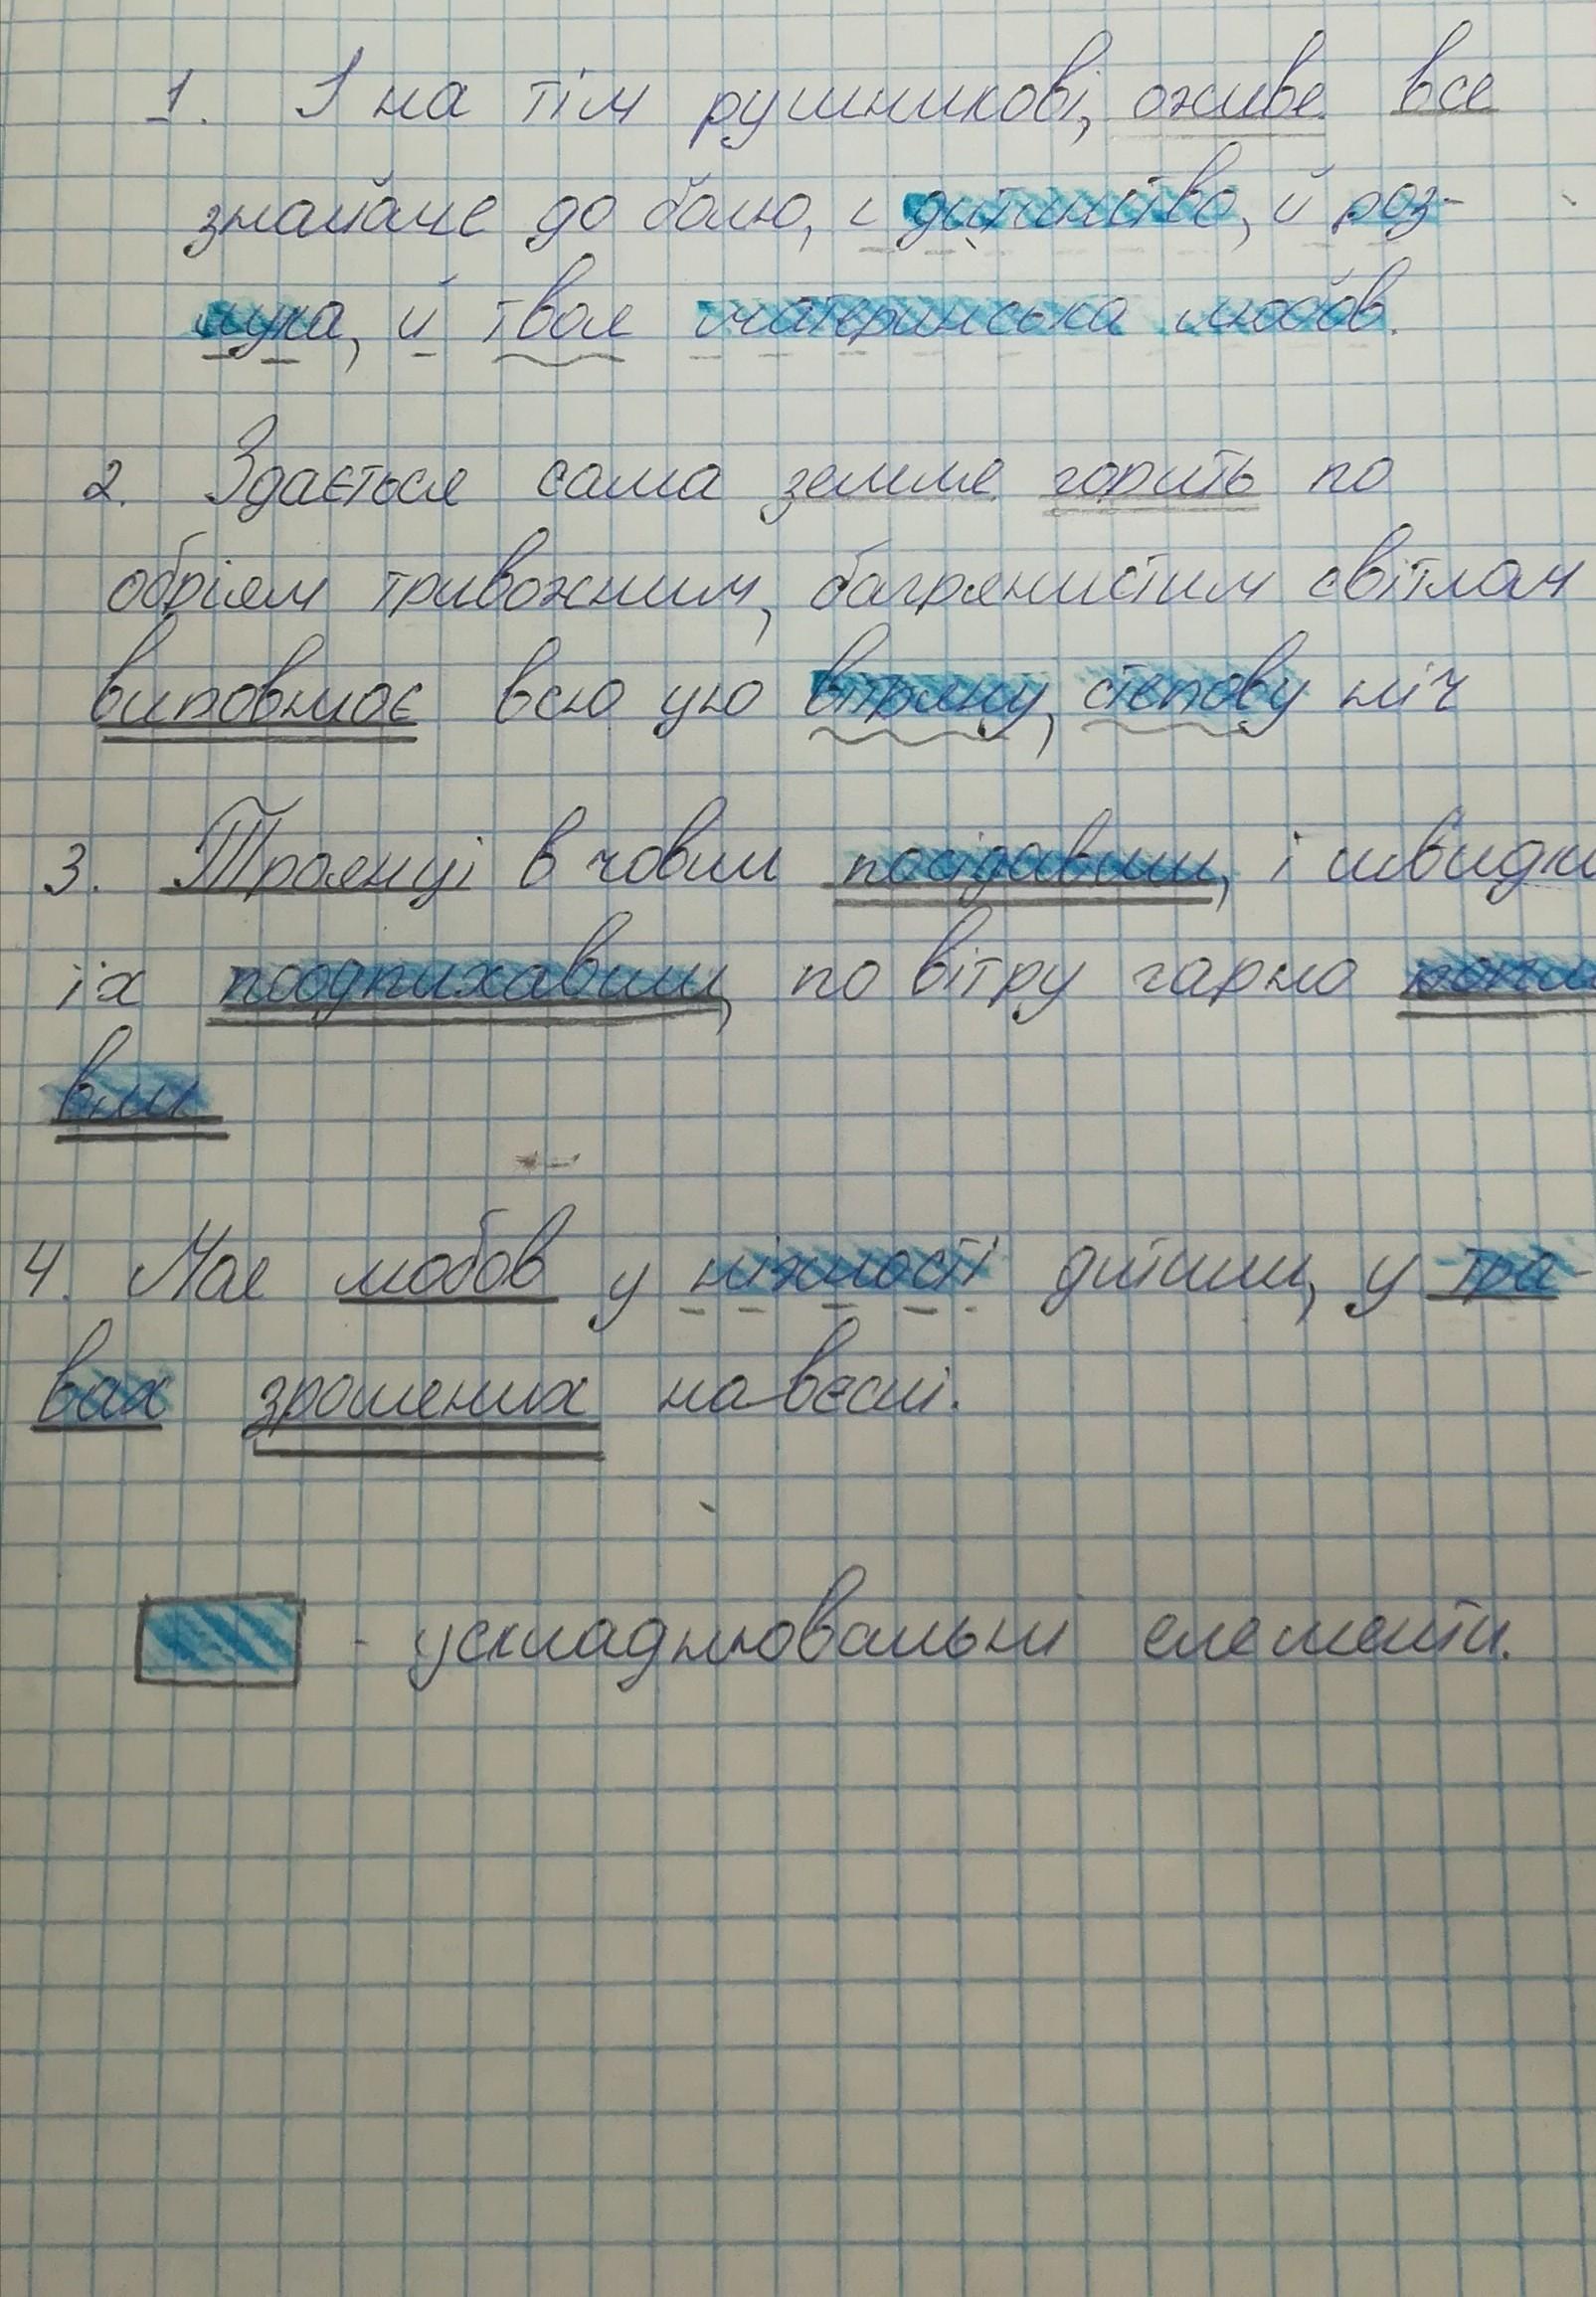 1. І на тім рушникові, оживе все
знайоме до болю, і дитинство, й роз-
лука, й твоя материнська любов.
2. Здається сама земля горить по
обріям тривожним, багрянистим світлом
виповнює всю цю вітряну, степову ніч
3. Троянці в човни посідавши, і швидко
їх поодпихавши, по вітру гарно попли
вли
4. Моя любов у ніжності дитини, у тра-
вах зрошених навесні.
- ускладнювальні елементи.